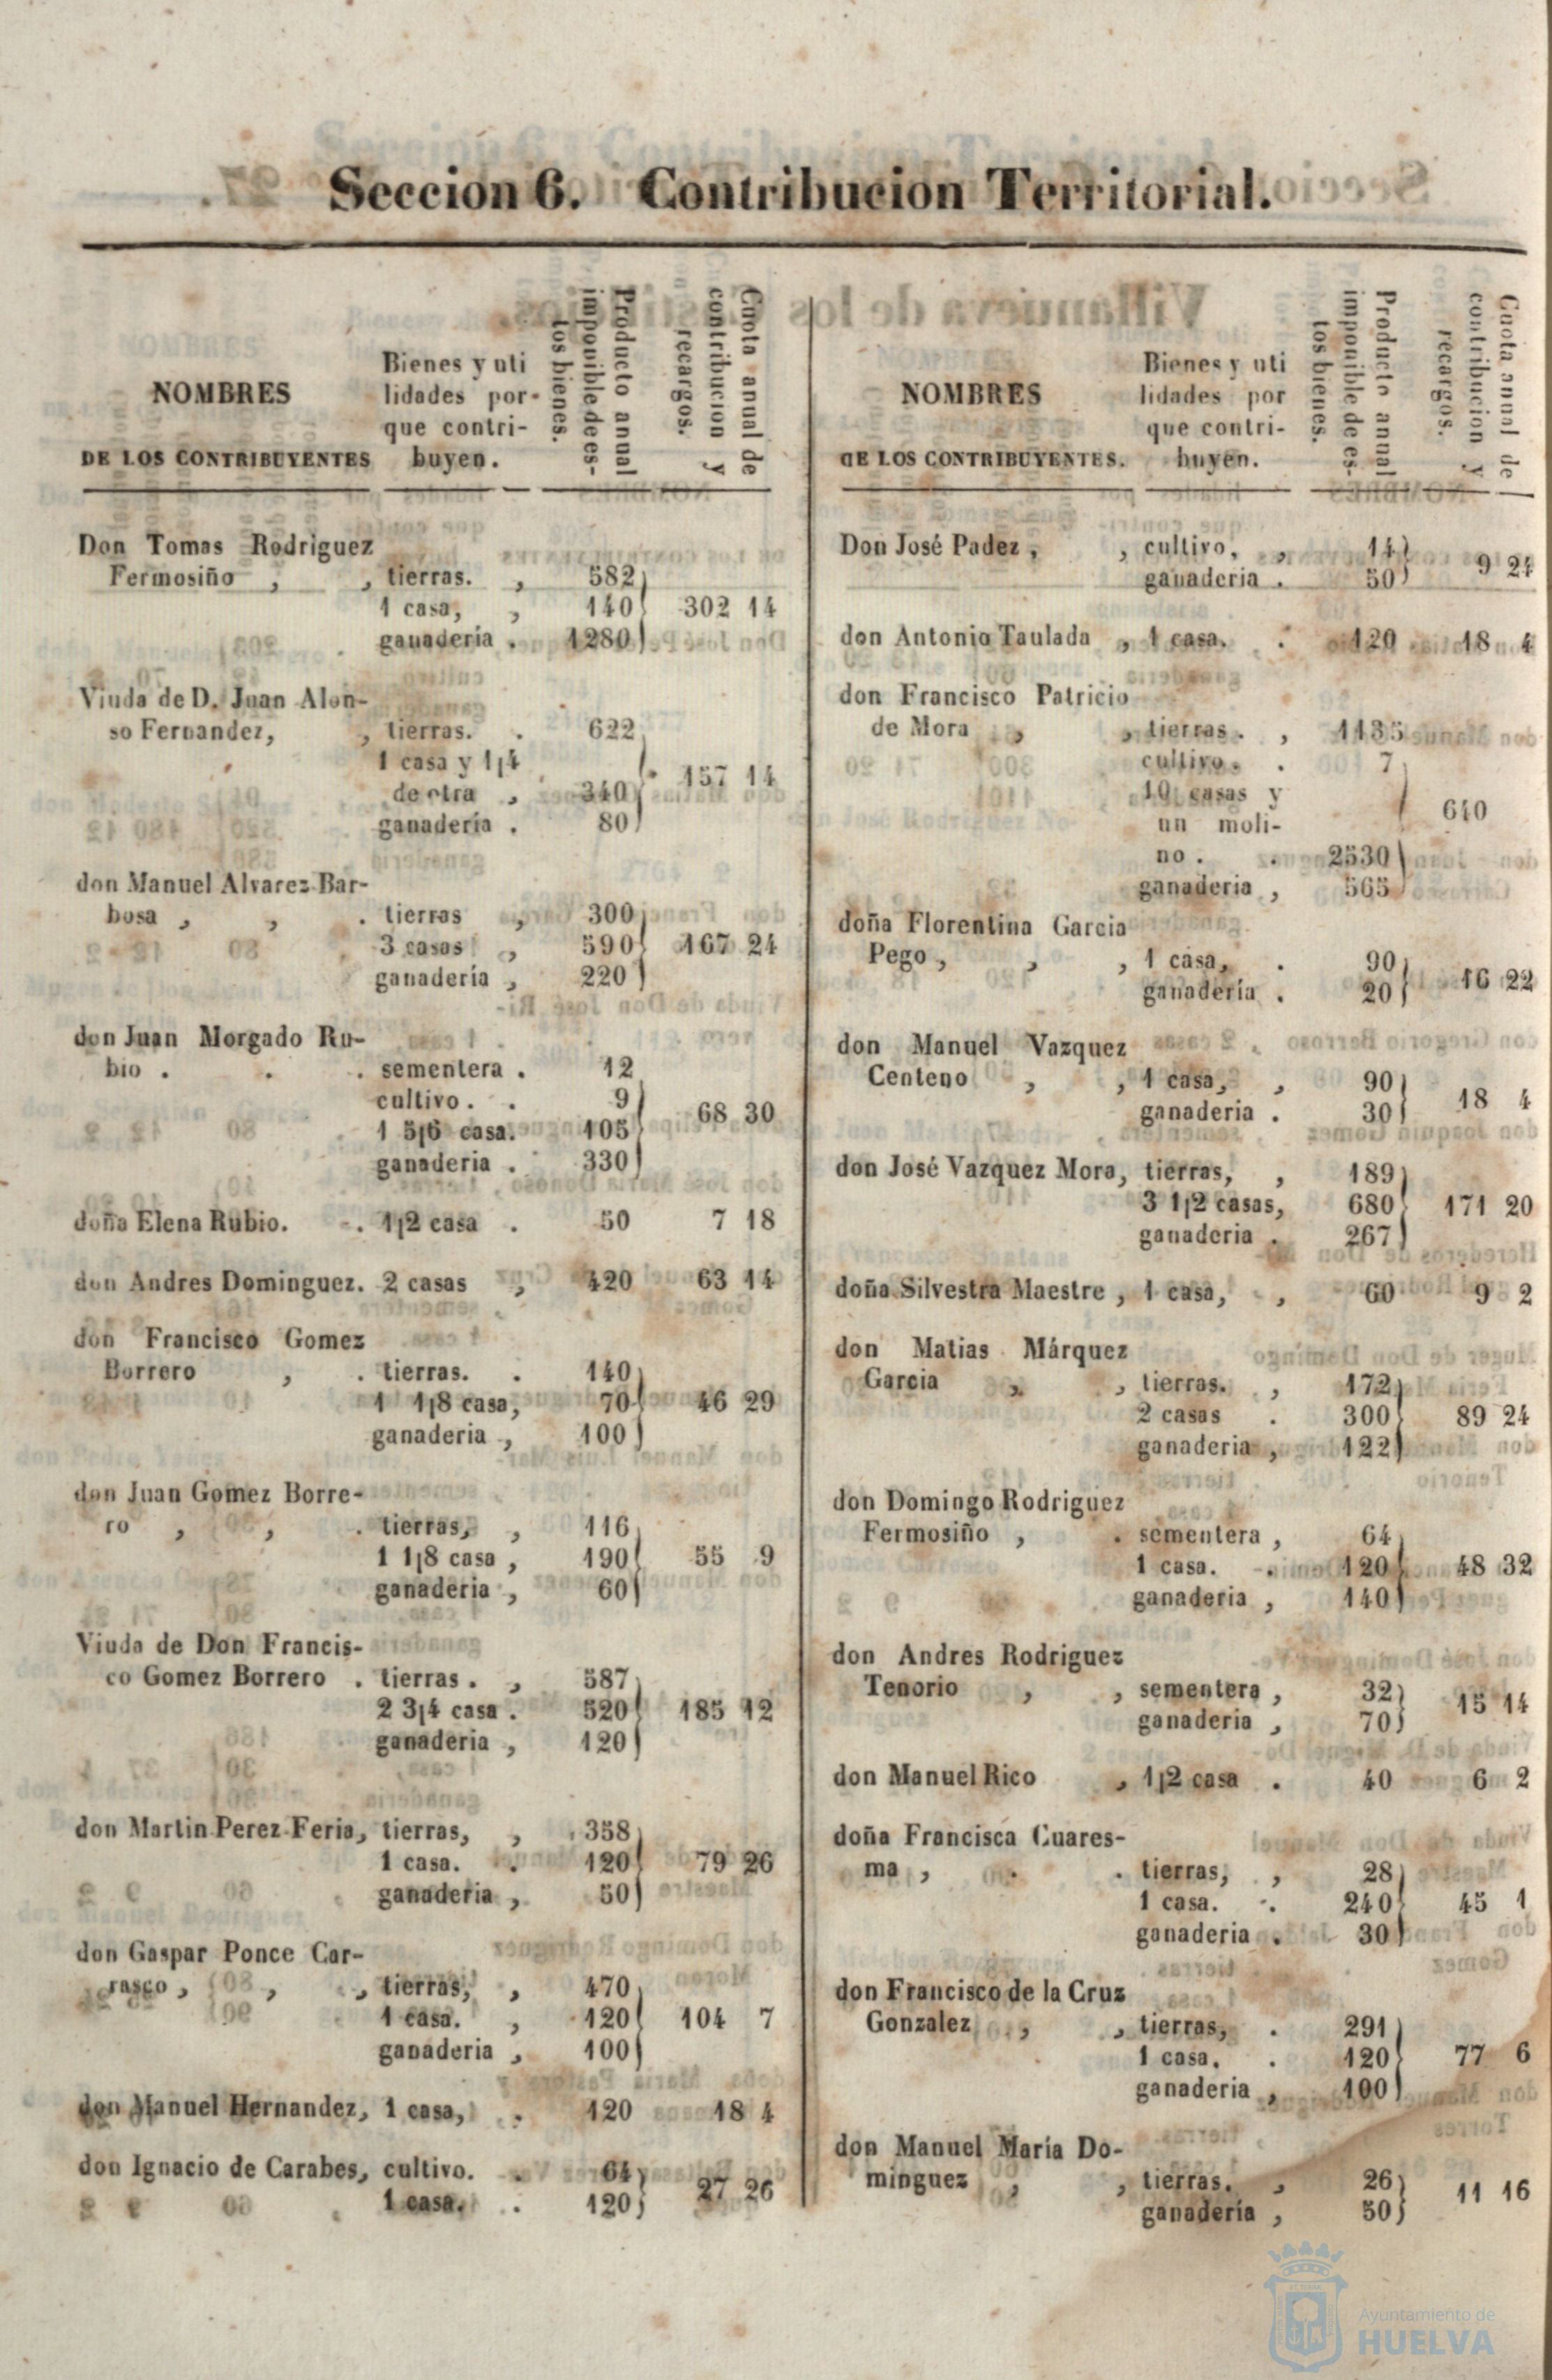 Seccion 6. Contribucion Territorial.
NOMBRES
DE LOS CONTRIBUYENTES
Bienes y uti
lidades por-
que contri-
buyen.
Producto anual
imponible de es-
tos bienes.
Cuota anual de
contribucion y
recargos.
Don Tomas Rodriguez
Fermosiño , , tierras. , 582
1 casa, , 140 302 14
ganaderia . 1280
Viuda de D. Juan Alon-
so Fernandez, , tierras. . 622
1 casa y 1¡4
de otra , 340 157 14
ganaderia . 80
don Manuel Alvarez Bar-
bosa , , . tierras , 300
3 casas , 590 167 24
ganaderia , 220
don Juan Morgado Ru-
bio . . . sementera . 12
cultivo. . 9
1 5¡6 casa. 105 68 30
ganaderia . 330
doña Elena Rubio. . 1¡2 casa . 50 7 18
don Andres Dominguez. 2 casas , 420 63 14
don Francisco Gomez
Borrero , . tierras. . 140
1 1¡8 casa, 70 46 29
ganaderia , 100
don Juan Gomez Borre-
ro , , . tierras, , 116
1 1¡8 casa , 190 55 9
ganaderia , 60
Viuda de Don Francis-
co Gomez Borrero . tierras . , 587
2 3¡4 casa . 520 185 12
ganaderia , 120
don Martin Perez Feria, tierras, , 358
1 casa. . 120 79 26
ganaderia , 50
don Gaspar Ponce Car-
rasco , , , tierras, , 470
1 casa. , 120 104 7
ganaderia , 100
don Manuel Hernandez, 1 casa, . 120 18 4
don Ignacio de Carabes, cultivo. . 64
1 casa. . 120 27 26
NOMBRES
DE LOS CONTRIBUYENTES.
Bienes y uti
lidades por
que contri-
buyen.
Producto anual
imponible de es-
tos bienes.
Cuota anual de
contribucion y
recargos.
Don José Padez , , cultivo, , 14
ganaderia . 50 9 24
don Antonio Taulada , 1 casa. . 120 18 4
don Francisco Patricio
de Mora , , tierras . , 1135
cultivo. . 7
10 casas y
un moli- 640
no . . 2530
ganaderia , 565
doña Florentina Garcia
Pego , , , 1 casa, . 90
ganaderia . 20 16 22
don Manuel Vazquez
Centeno , , 1 casa, , 90
ganaderia . 30 18 4
don José Vazquez Mora, tierras, , 189
3 1¡2 casas, 680 171 20
ganaderia . 267
doña Silvestra Maestre , 1 casa, , 60 9 2
don Matias Márquez
Garcia , , tierras. , 172
2 casas . 300 89 24
ganaderia , 122
don Domingo Rodriguez
Fermosiño , . sementera , 64
1 casa. . 120 48 32
ganaderia , 140
don Andres Rodriguez
Tenorio , , sementera , 32
ganaderia , 70 15 14
don Manuel Rico , 1¡2 casa . 40 6 2
doña Francisca Cuares-
ma , . . tierras, , 28
1 casa. . 240 45 1
ganaderia . 30
don Francisco de la Cruz
Gonzalez , , tierras, . 291
1 casa. . 120 77 6
ganaderia , 100
don Manuel María Do-
minguez , , tierras. , 26
ganaderia , 50 11 16
Ayuntamiento de
HUELVA